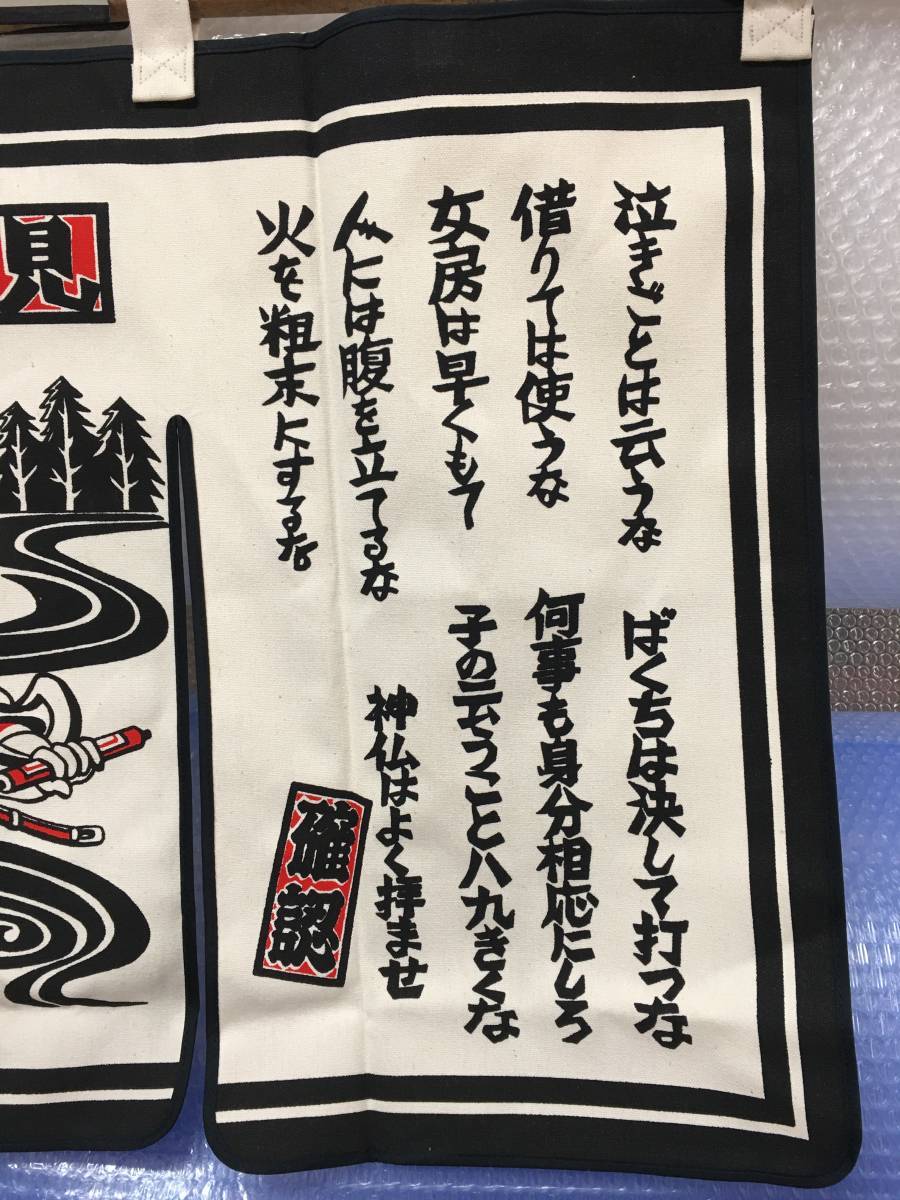 泣きごとは云うな
ばくちは決して打つな
借りては使うな
何事も身分相応にしろ
女房は早くもて
子の云うこと八九きくな
人には腹を立てるな
神仏はよく拝ませ
火を粗末にするな
確認
見